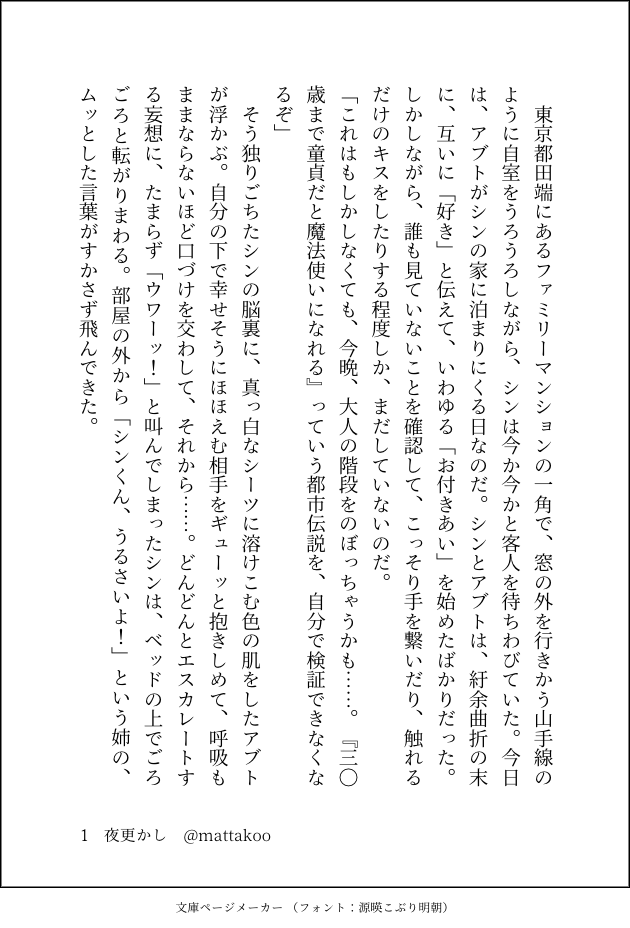 東京都田端にあるファミリーマンションの一角で、窓の外を行きかう山手線の
ように自室をうろうろしながら、シンは今か今かと客人を待ちわびていた。今日
は、アブトがシンの家に泊まりにくる日なのだ。シンとアブトは、紆余曲折の末
に、互いに「好き」と伝えて、いわゆる「お付きあい」を始めたばかりだった。
しかしながら、誰も見ていないことを確認して、こっそり手を繋いだり、触れる
だけのキスをしたりする程度しか、まだしていないのだ。
「これはもしかしなくても、今晩、大人の階段をのぼっちゃうかも……。『三〇
歳まで童貞だと魔法使いになれる』っていう都市伝説を、自分で検証できなくな
るぞ」
そう独りごちたシンの脳裏に、真っ白なシーツに溶けこむ色の肌をしたアブト
が浮かぶ。自分の下で幸せそうにほほえむ相手をギューッと抱きしめて、呼吸も
ままならないほど口づけを交わして、それから……。どんどんとエスカレートす
る妄想に、たまらず「ウワーッ！」と叫んでしまったシンは、ベッドの上でごろ
ごろと転がりまわる。部屋の外から「シンくん、うるさいよ！」という姉の、
ムッとした言葉がすかさず飛んできた。
1 夜更かし @mattakoo
文庫ページメーカー（フォント：源暎こぶり明朝）